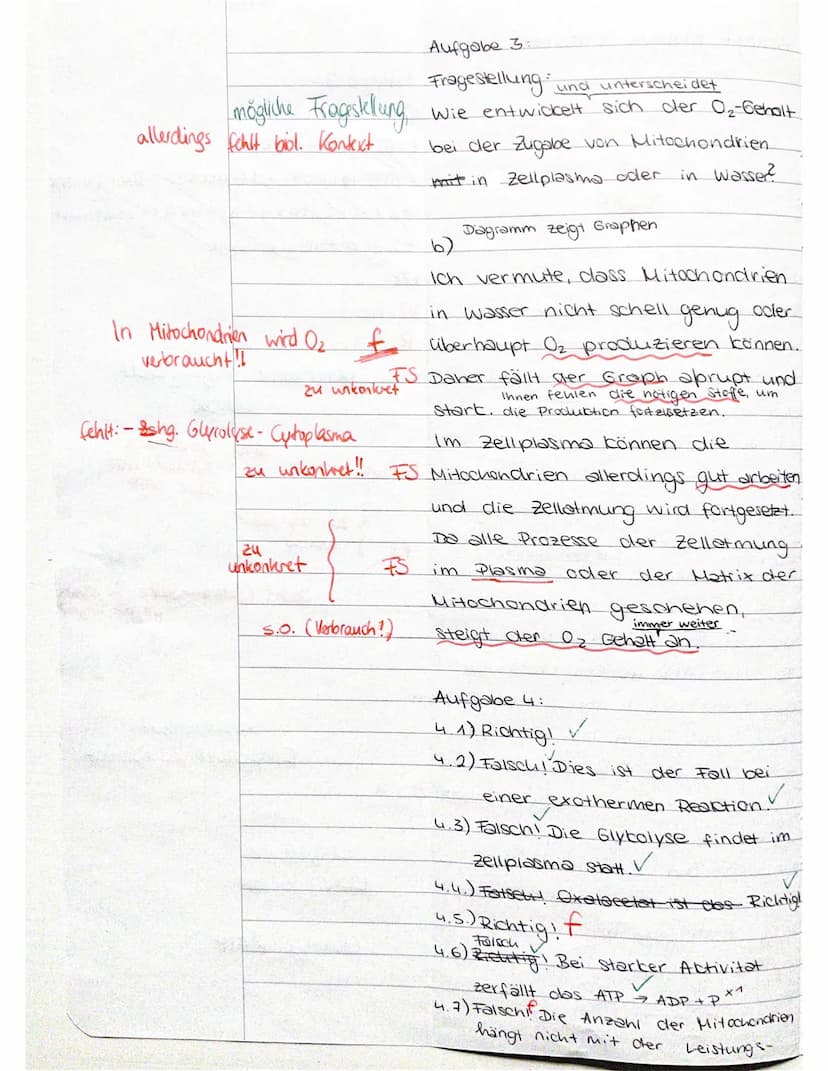 Aufgabe 3:
Fragestellung: und unterscheidet
mögliche Fragestellung, Wie entwickelt sich der O₂-Gehalt
allerdings fehlt biol. Kontext bei der Zugabe von Mitochondrien
mit in Zellplasma oder in Wasser?
b) Diagramm zeigt Graphen
Ich vermute, dass Mitochondrien
in Wasser nicht schell genug oder
In Mitochondrien wird O₂ f überhaupt O₂ produzieren können.
verbraucht!!
FS Daher fällt der Graph abrupt und
zu unkonkret Ihnen fehlen die nötigen Stoffe, um
start. die Produktion fortzusetzen.
fehlt: - Zshg. Glycolyse - Cytoplasma Im Zellplasma können die
zu unkonkret!! FS Mitochondrien allerdings gut arbeiten
und die Zellatmung wird fortgesetzt.
Da alle Prozesse der Zellatmung
zu unkonkret FS im Plasma oder der Matrix der
Mitochondrien geschehen,
immer weiter
s.o. (Verbrauch!) steigt der O₂ Gehalt an.
Aufgabe 4:
4.1) Richtig! ✓
4.2) Falsch! ✓ Dies ist der Fall bei
einer exothermen Reaction. ✓
4.3) Falsch! ✓ Die Glykolyse findet im
Zellplasma statt. ✓
4.4.) Falsch! Oxalacetat ist das Richtig! ✓
4.5.) Richtig! f
Falsch ✓
4.6) Richtig! Bei starker Activität
zerfällt das ATP ✓ → ADP + P ˣ¹
4.7) Falsch! f Die Anzahl der Mitochondrien
hängt nicht mit der Leistungs-